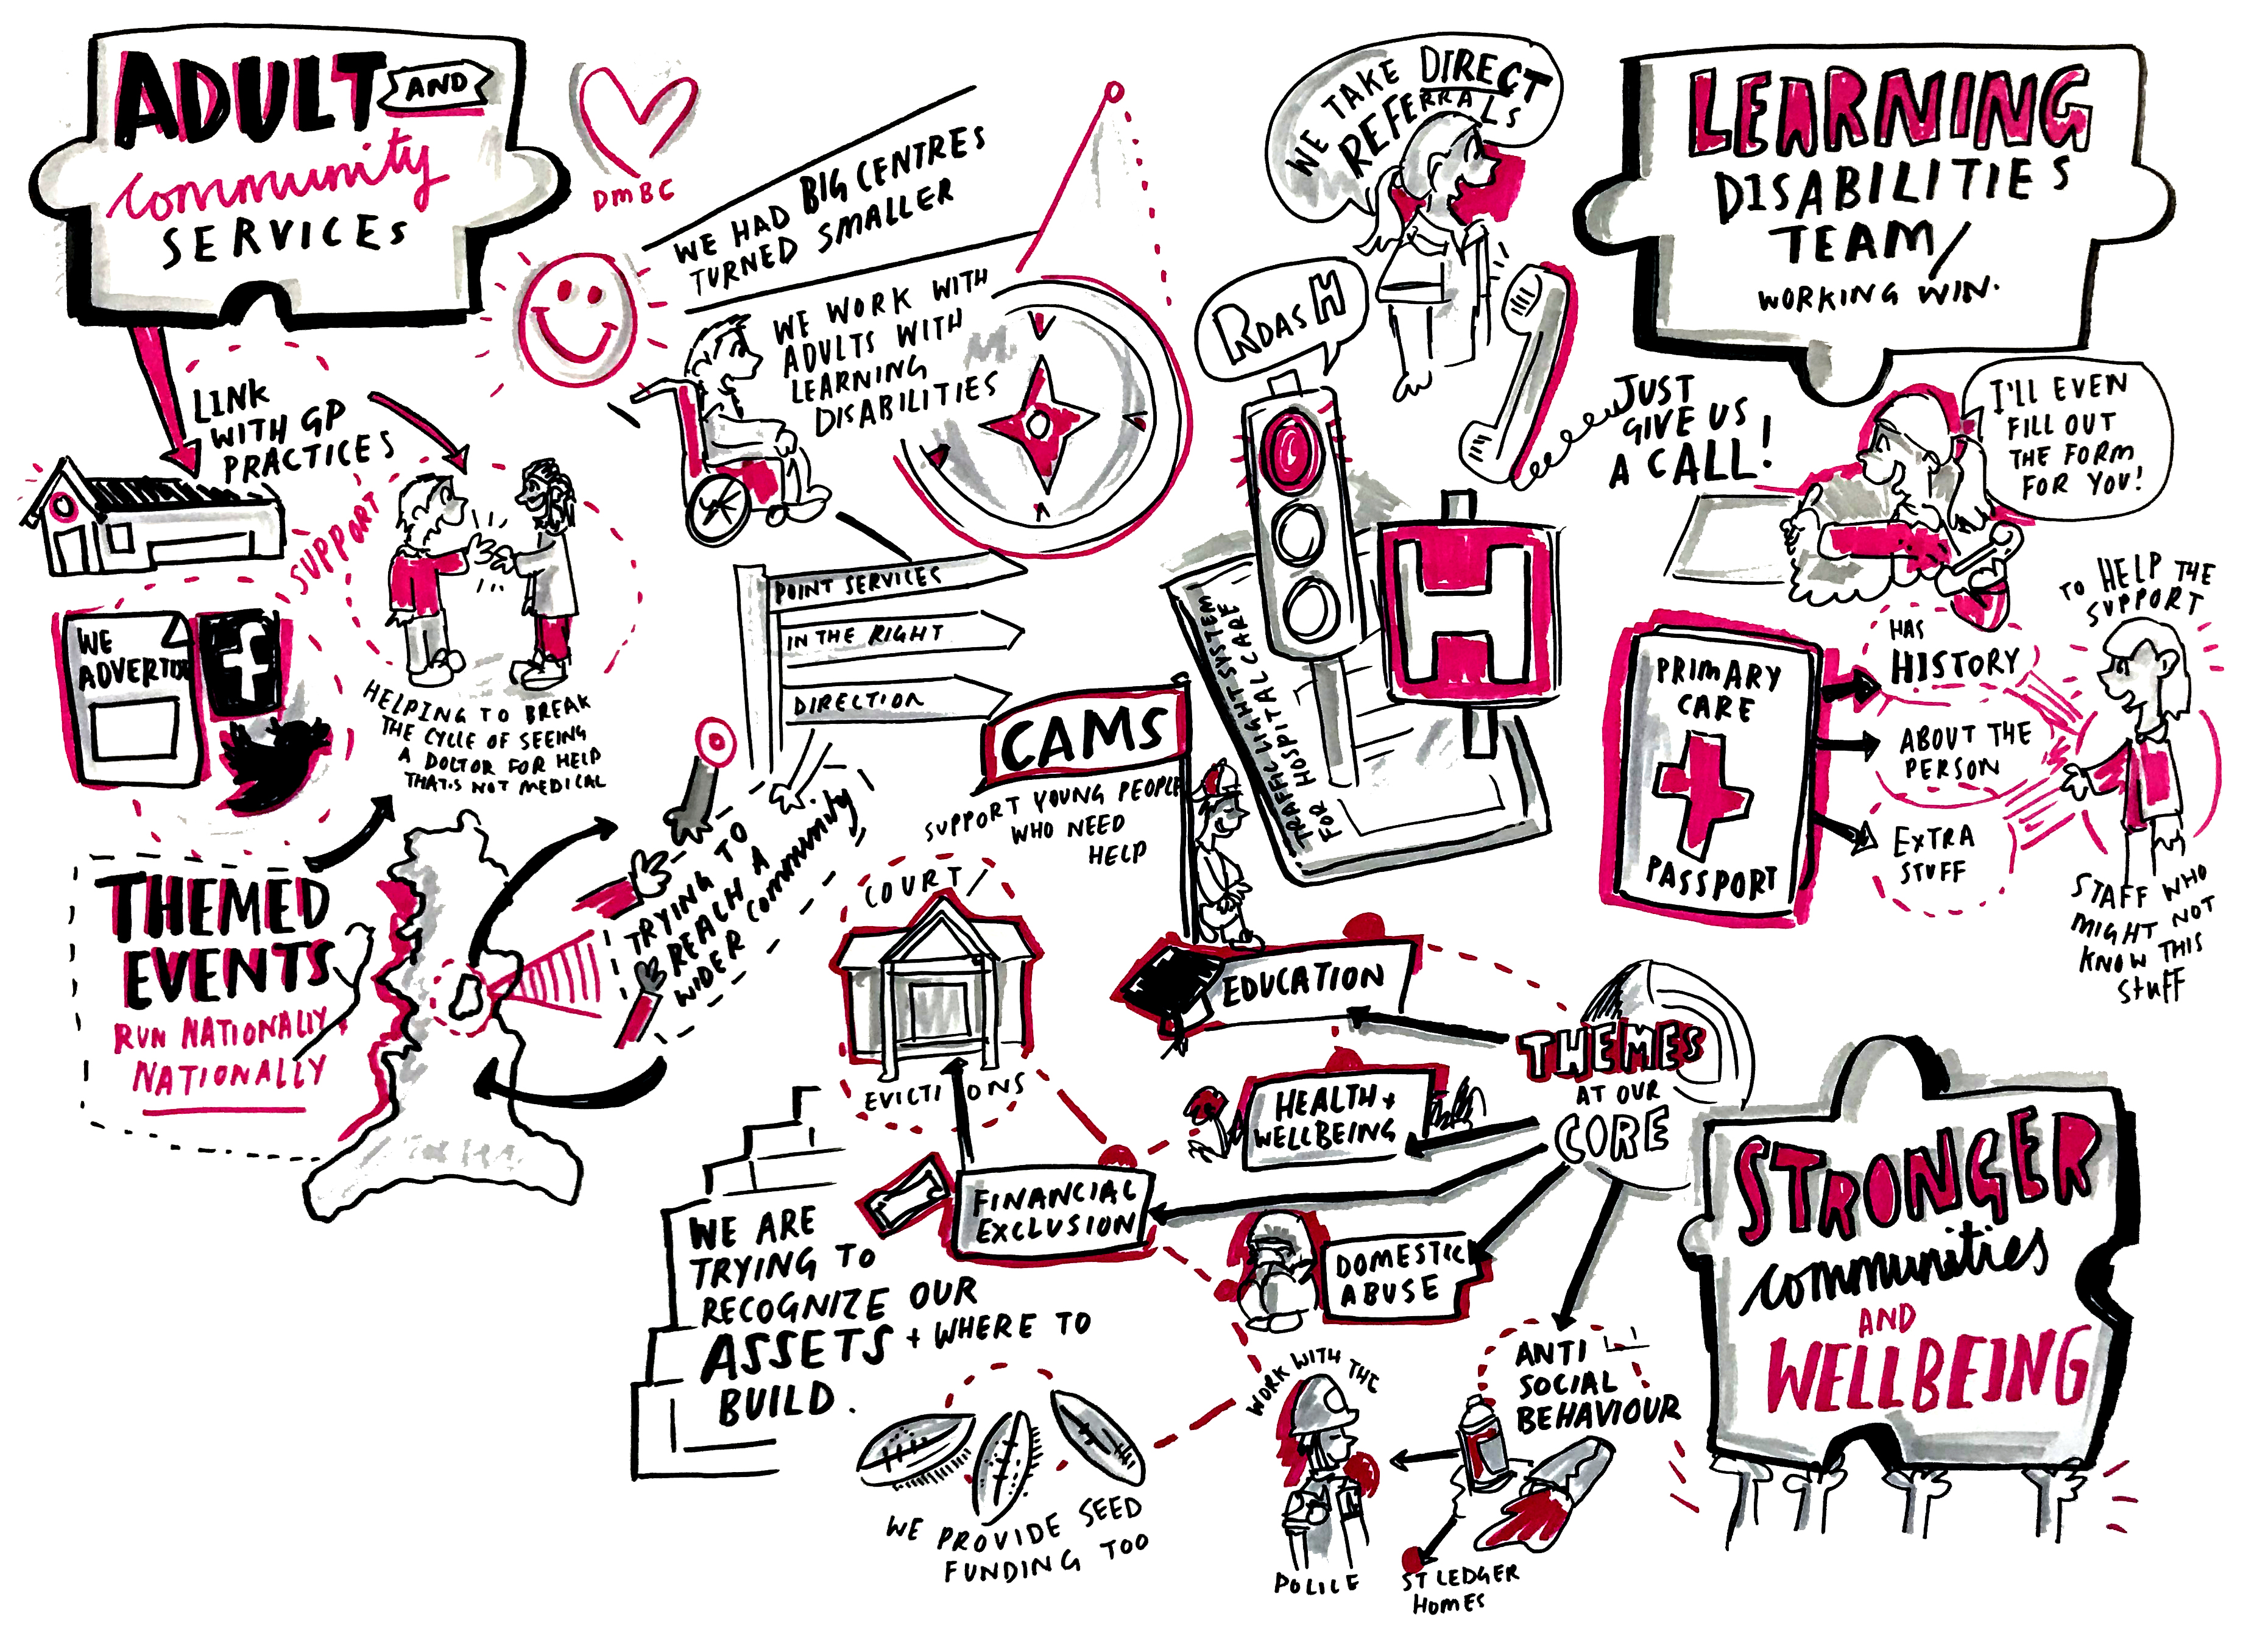 ADULT AND
community
SERVICES
DMBC
WE HAD BIG CENTRES
TURNED SMALLER
WE WORK WITH
ADULTS WITH
LEARNING
DISABILITIES
LINK
WITH GP
PRACTICES
SUPPORT
HELPING TO BREAK
THE CYCLE OF SEEING
A DOCTOR FOR HELP
THAT'S NOT MEDICAL
WE
ADVERTISE
f
THEMED
EVENTS
RUN NATIONALLY
NATIONALLY
TRYING TO
REACH A
WIDER community
POINT SERVICES
IN THE RIGHT
DIRECTION
WE TAKE DIRECT
REFERRALS
RDASH
JUST
GIVE US
A CALL!
TRAFFIC LIGHT SYSTEM
FOR HOSPITAL CARE
H
LEARNING
DISABILITIES
TEAM/
WORKING WIN.
I'LL EVEN
FILL OUT
THE FORM
FOR YOU!
PRIMARY
CARE
PASSPORT
HAS
HISTORY
ABOUT THE
PERSON
EXTRA
STUFF
TO HELP THE
SUPPORT
STAFF WHO
MIGHT NOT
KNOW THIS
STUFF
CAMS
SUPPORT YOUNG PEOPLE
WHO NEED
HELP
COURT/
EVICTIONS
EDUCATION
HEALTH +
WELLBEING
FINANCIAL
EXCLUSION
DOMESTIC
ABUSE
ANTI
SOCIAL
BEHAVIOUR
THEMES
AT OUR
CORE
WORK WITH THE
POLICE
ST LEDGER
HOMES
WE ARE
TRYING TO
RECOGNIZE OUR
ASSETS + WHERE TO
BUILD.
WE PROVIDE SEED
FUNDING TOO
STRONGER
communities
AND
WELLBEING